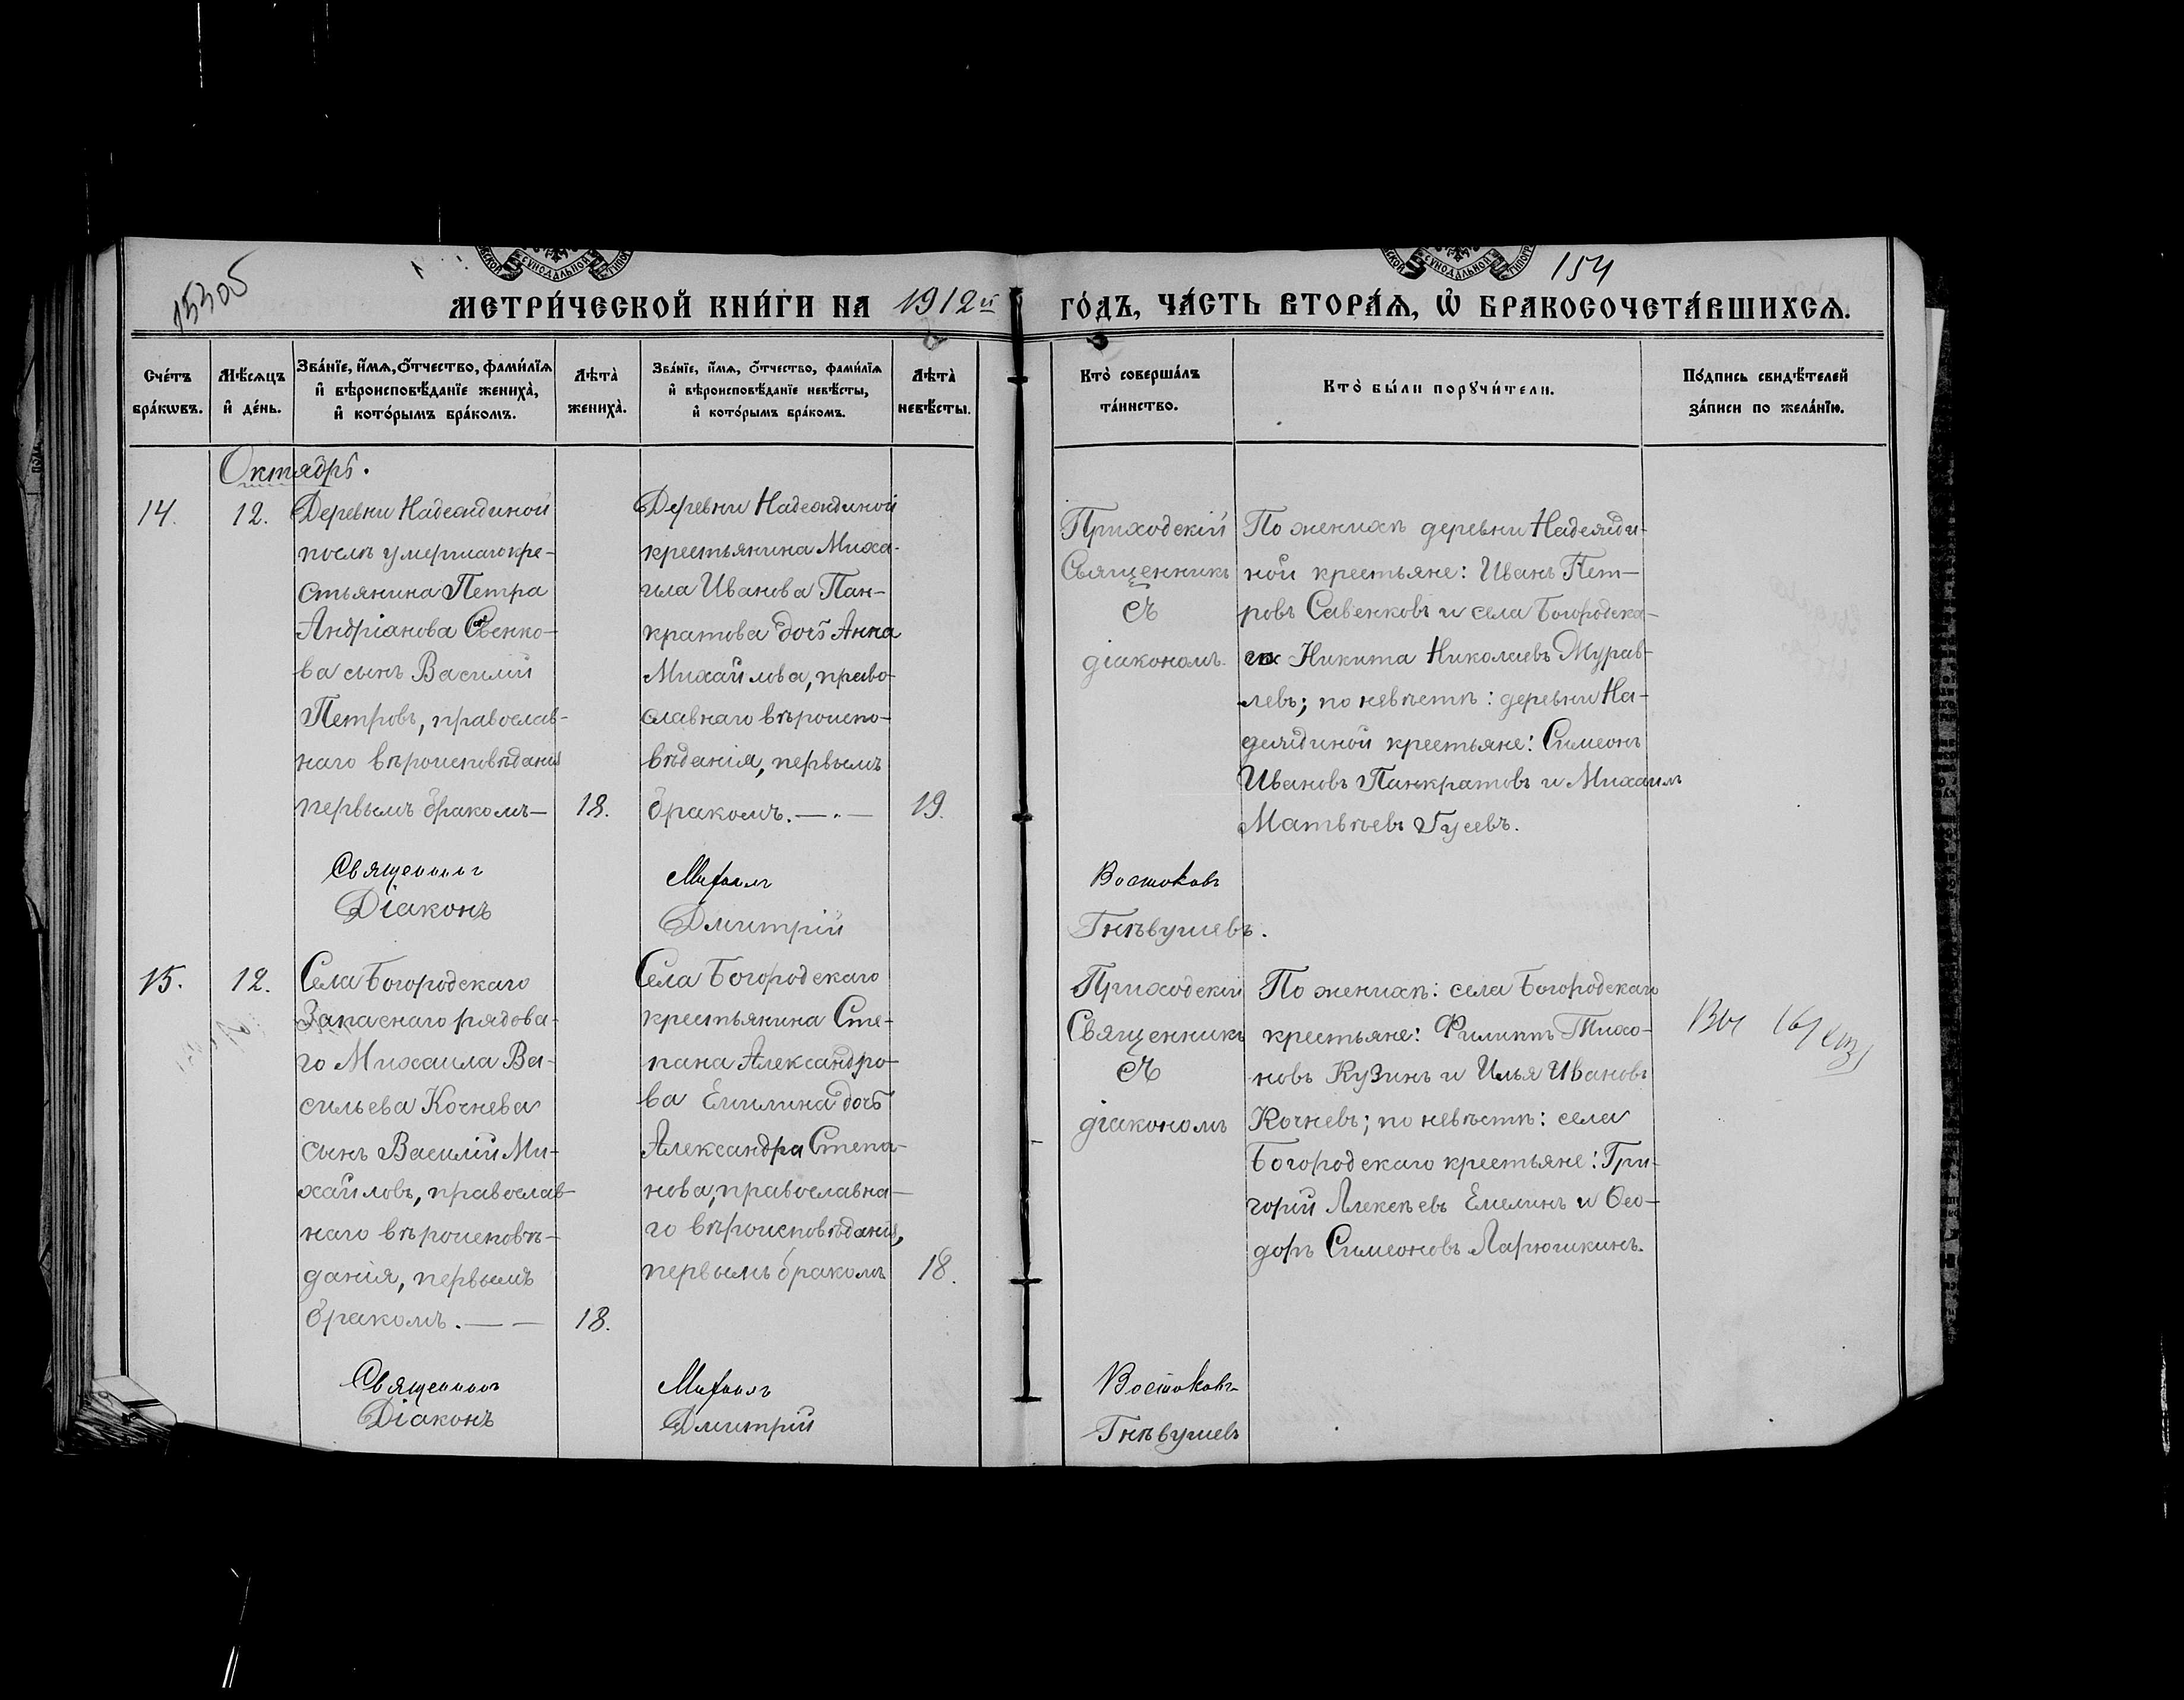 15305
154
МЕТРИ́ЧЕСКОЙ КНИ́ГИ НА 1912й ГО́ДЪ, ЧА́СТЬ ВТОРА́Ѧ, Ѽ БРАКОСОЧЕТА́ВШИХСѦ.
Сче́тъ бра́кѡвъ.
Мѣ́сѧцъ и҆ де́нь.
Зва́нїе, и҆́мѧ, ѻ҆́тчество, фами́лїѧ и҆ вѣроисповѣ́данїе жениха̀, и҆ кото́рымъ бра́комъ.
Лѣ́та̀ жениха̀.
Зва́нїе, и҆́мѧ, ѻ҆́тчество, фами́лїѧ и҆ вѣроисповѣ́данїе невѣ́сты, и҆ кото́рымъ бра́комъ.
Лѣ́та̀ невѣ́сты.
Кто̀ соверша́лъ та́инство.
Кто̀ бы́ли порꙋчи́тели.
По́дпись свидѣ́телей за́писи по жела́нїю.
Октябрь.
14.
12.
Деревни Надеждиной
послѣ умершаго кре-
стьянина Петра
Андріанова Савенко-
ва сынъ Василій
Петровъ, православ-
наго вѣроисповѣданія
первымъ бракомъ—
18.
Деревни Надеждиной
крестьянина Миха-
ила Иванова Пан-
кратова дочь Анна
Михайлова, право-
славнаго вѣроиспо-
вѣданія, первымъ
бракомъ.—.—
19.
Приходскій
Священникъ
съ
діакономъ.
По женихѣ деревни Надежди-
ной крестьяне: Иванъ Пет-
ровъ Савенковъ и села Богородска-
го Никита Николаевъ Журав-
левъ; по невѣстѣ: деревни На-
деждиной крестьяне: Симеонъ
Ивановъ Панкратовъ и Михаилъ
Матвѣевъ Гусевъ.
Священникъ Михаилъ Востоковъ
Діаконъ Дмитрій Гнѣвушевъ.
15.
12.
Села Богородскаго
Запаснаго рядова-
го Михаила Ва-
сильева Кочнева
сынъ Василій Ми-
хайловъ, православ-
наго вѣроисповѣ-
данія, первымъ
бракомъ.— —
18.
Села Богородскаго
крестьянина Сте-
пана Александро-
ва Емилина дочь
Александра Степа-
нова, православна-
го вѣроисповѣданія,
первымъ бракомъ
18.
Приходскій
Священникъ
съ
діакономъ
По женихѣ: села Богородскаго
крестьяне: Филиппъ Тихо-
новъ Кузинъ и Илья Ивановъ
Кочневъ; по невѣстѣ: села
Богородскаго крестьяне: Гри-
горій Алексѣевъ Емелинъ и Ѳео-
доръ Симеоновъ Ларюшкинъ.
Священникъ Михаилъ Востоковъ
Діаконъ Дмитрій Гнѣвушевъ